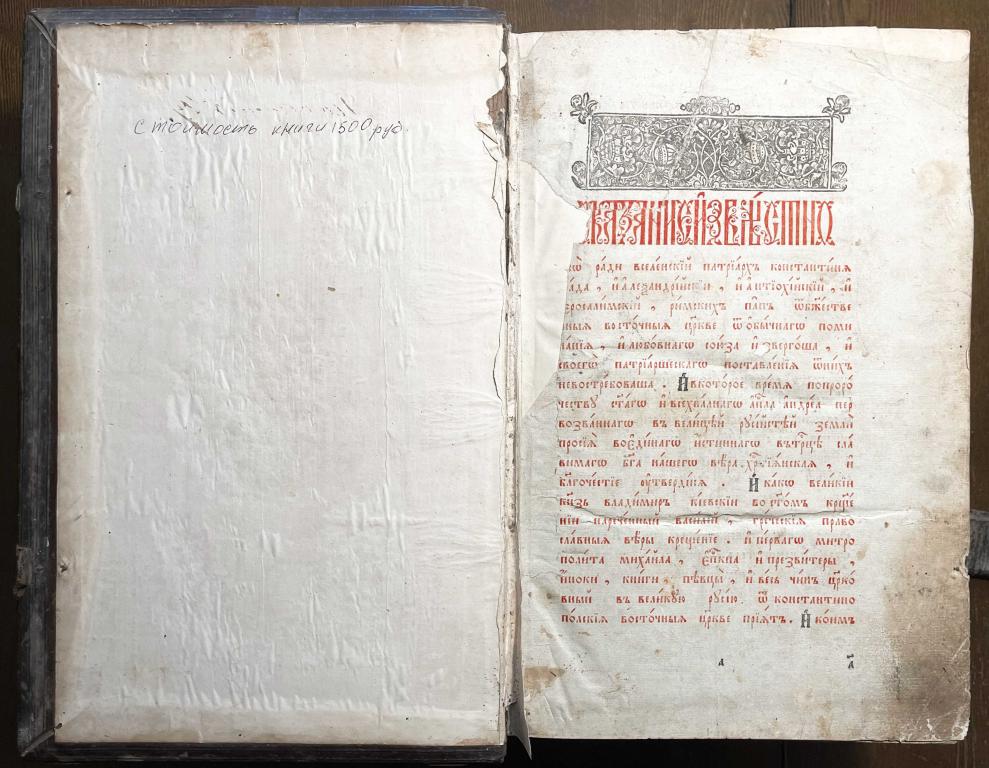 Стоимость книги 1500 руб.
ꙗ҆вѣ́стно
ра́ди вселе́нскїй патрїа́рхъ константи́нѧ
гра́да, и҆ а҆леѯандрі́йскїи, и҆ а҆нтїохі́йскїй, и҆
і҆єросали́мскїй, ри́мскихъ па́пъ ѿ бж҃е́стве
нныѧ восто́чныѧ цр҃кве ѿ ѻ҆бы́чнагѡ помн
на́нїѧ, и҆ любо́внагѡ сою́за и҆зверго́ша, и҆
своегѡ̀ патрїа́ршескагѡ поставле́нїѧ ѿ ни́хъ
невостре́боваша. И҆ в нѣ́которое вре́мѧ по проро́
честву ст҃а́гѡ и҆ всехва́лнагѡ а҆пⷭ҇ла а҆ндре́а пер
возва́ннагѡ въ вели́цѣй рꙋсі́йстѣй землѝ
просїѧ̀ во є҆ди́нагѡ и҆́стиннагѡ въ трⷪ҇цѣ сла́
вимагѡ бг҃а на́шегѡ вѣ́ра хрⷭ҇тїѧ́нскаѧ, и҆
бл҃гоче́стїе ᲂу҆тверди́сѧ. И҆ ка́кѡ вели́кїй
кн҃зь влади́миръ кі́евскїи во ст҃о́мъ крщ҃е́
нїи нарече́нный васи́лїй, гре́ческїѧ право
сла́вныѧ вѣ́ры креще́нїе. и҆ пе́рвагѡ митро
поли́та михаи́ла, є҆пⷭ҇кпа и҆ презви́теры,
и҆́ноки, кни́ги, пѣвцы̀, и҆ ве́сь чи́нъ цр҃ко́
вный въ вели́кую рꙋсі́ю. ѿ константино
по́лскїѧ восто́чныѧ цр҃кве прїѧ́тъ. И҆ ко́имъ
а
а҃